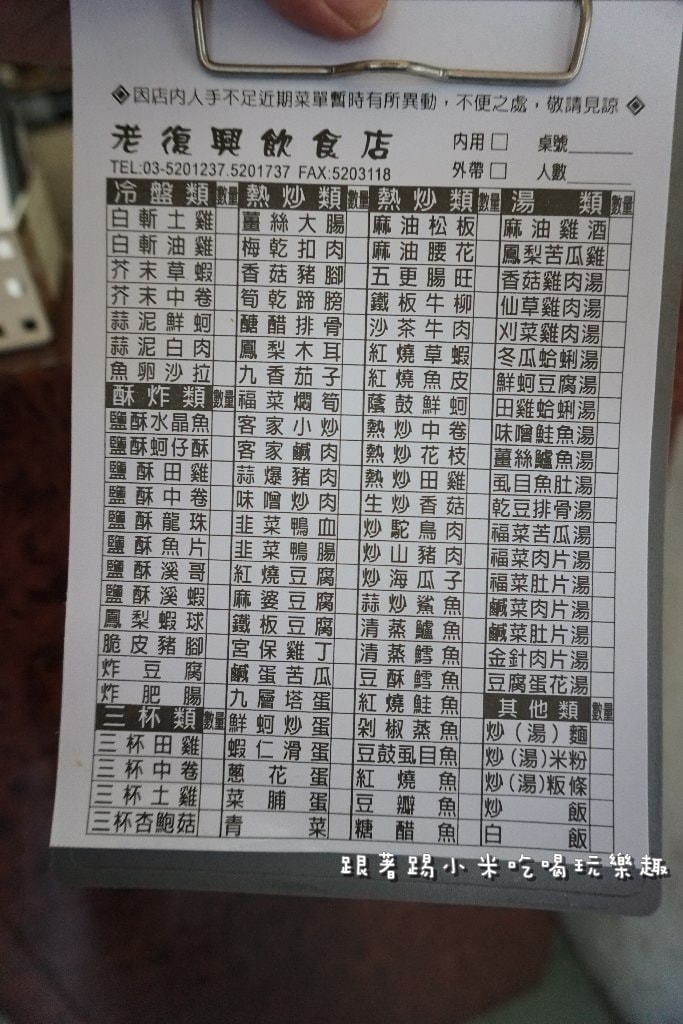 ◈因店內人手不足近期菜單暫時有所異動，不便之處，敬請見諒◈
老復興飲食店
內用□ 桌號
TEL:03-5201237.5201737 FAX:5203118
外帶□ 人數
冷盤類 數量
白斬土雞
白斬油雞
芥末草蝦
芥末中卷
蒜泥鮮蚵
蒜泥白肉
魚卵沙拉
酥炸類 數量
鹽酥水晶魚
鹽酥蚵仔酥
鹽酥田雞
鹽酥中卷
鹽酥龍珠
鹽酥魚片
鹽酥溪哥
鹽酥溪蝦
鳳梨蝦球
脆皮豬腳
炸豆腐
炸肥腸
三杯類 數量
三杯田雞
三杯中卷
三杯土雞
三杯杏鮑菇
熱炒類 數量
薑絲大腸
梅乾扣肉
香菇豬腳
筍乾蹄膀
醣醋排骨
鳳梨木耳
九香茄子
福菜燜筍
客家小炒
客家鹹肉
蒜爆豬肉
味噌炒肉
韭菜鴨血
韭菜鴨腸
紅燒豆腐
麻婆豆腐
鐵板豆腐
宮保雞丁
鹹蛋苦瓜
九層塔蛋
鮮蚵炒蛋
蝦仁滑蛋
蔥花蛋
菜脯蛋
青菜
熱炒類 數量
麻油松板
麻油腰花
五更腸旺
鐵板牛柳
沙茶牛肉
紅燒草蝦
紅燒魚皮
蔭鼓鮮蚵
熱炒中卷
熱炒花枝
熱炒田雞
生炒香菇
炒駝鳥肉
炒山豬肉
炒海瓜子
蒜炒鯊魚
清蒸鱸魚
清蒸鱈魚
豆酥鱈魚
紅燒鮭魚
剁椒蒸魚
豆鼓虱目魚
紅燒魚
豆瓣魚
糖醋魚
湯類 數量
麻油雞酒
鳳梨苦瓜雞
香菇雞肉湯
仙草雞肉湯
刈菜雞肉湯
冬瓜蛤蜊湯
鮮蚵豆腐湯
田雞蛤蜊湯
味噌鮭魚湯
薑絲鱸魚湯
虱目魚肚湯
乾豆排骨湯
福菜苦瓜湯
福菜肉片湯
福菜肚片湯
鹹菜肉片湯
鹹菜肚片湯
金針肉片湯
豆腐蛋花湯
其他類 數量
炒(湯)麵
炒(湯)米粉
炒(湯)粄條
炒飯
白飯
跟著踢小米吃喝玩樂趣